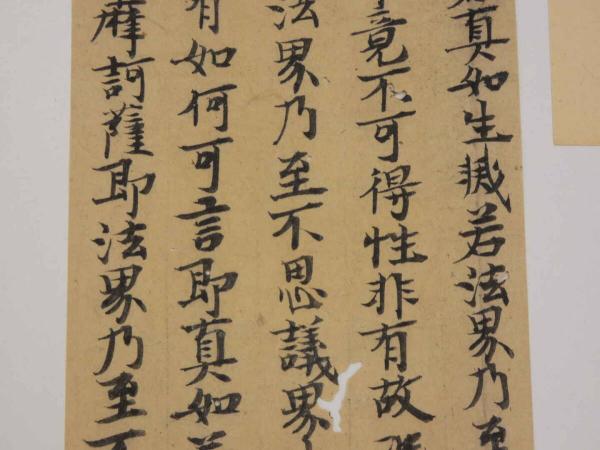 真如生滅若法界乃至
竟不可得性非有故
法界乃至不思議界
有如何可言即真如若
摩訶薩即法界乃至不